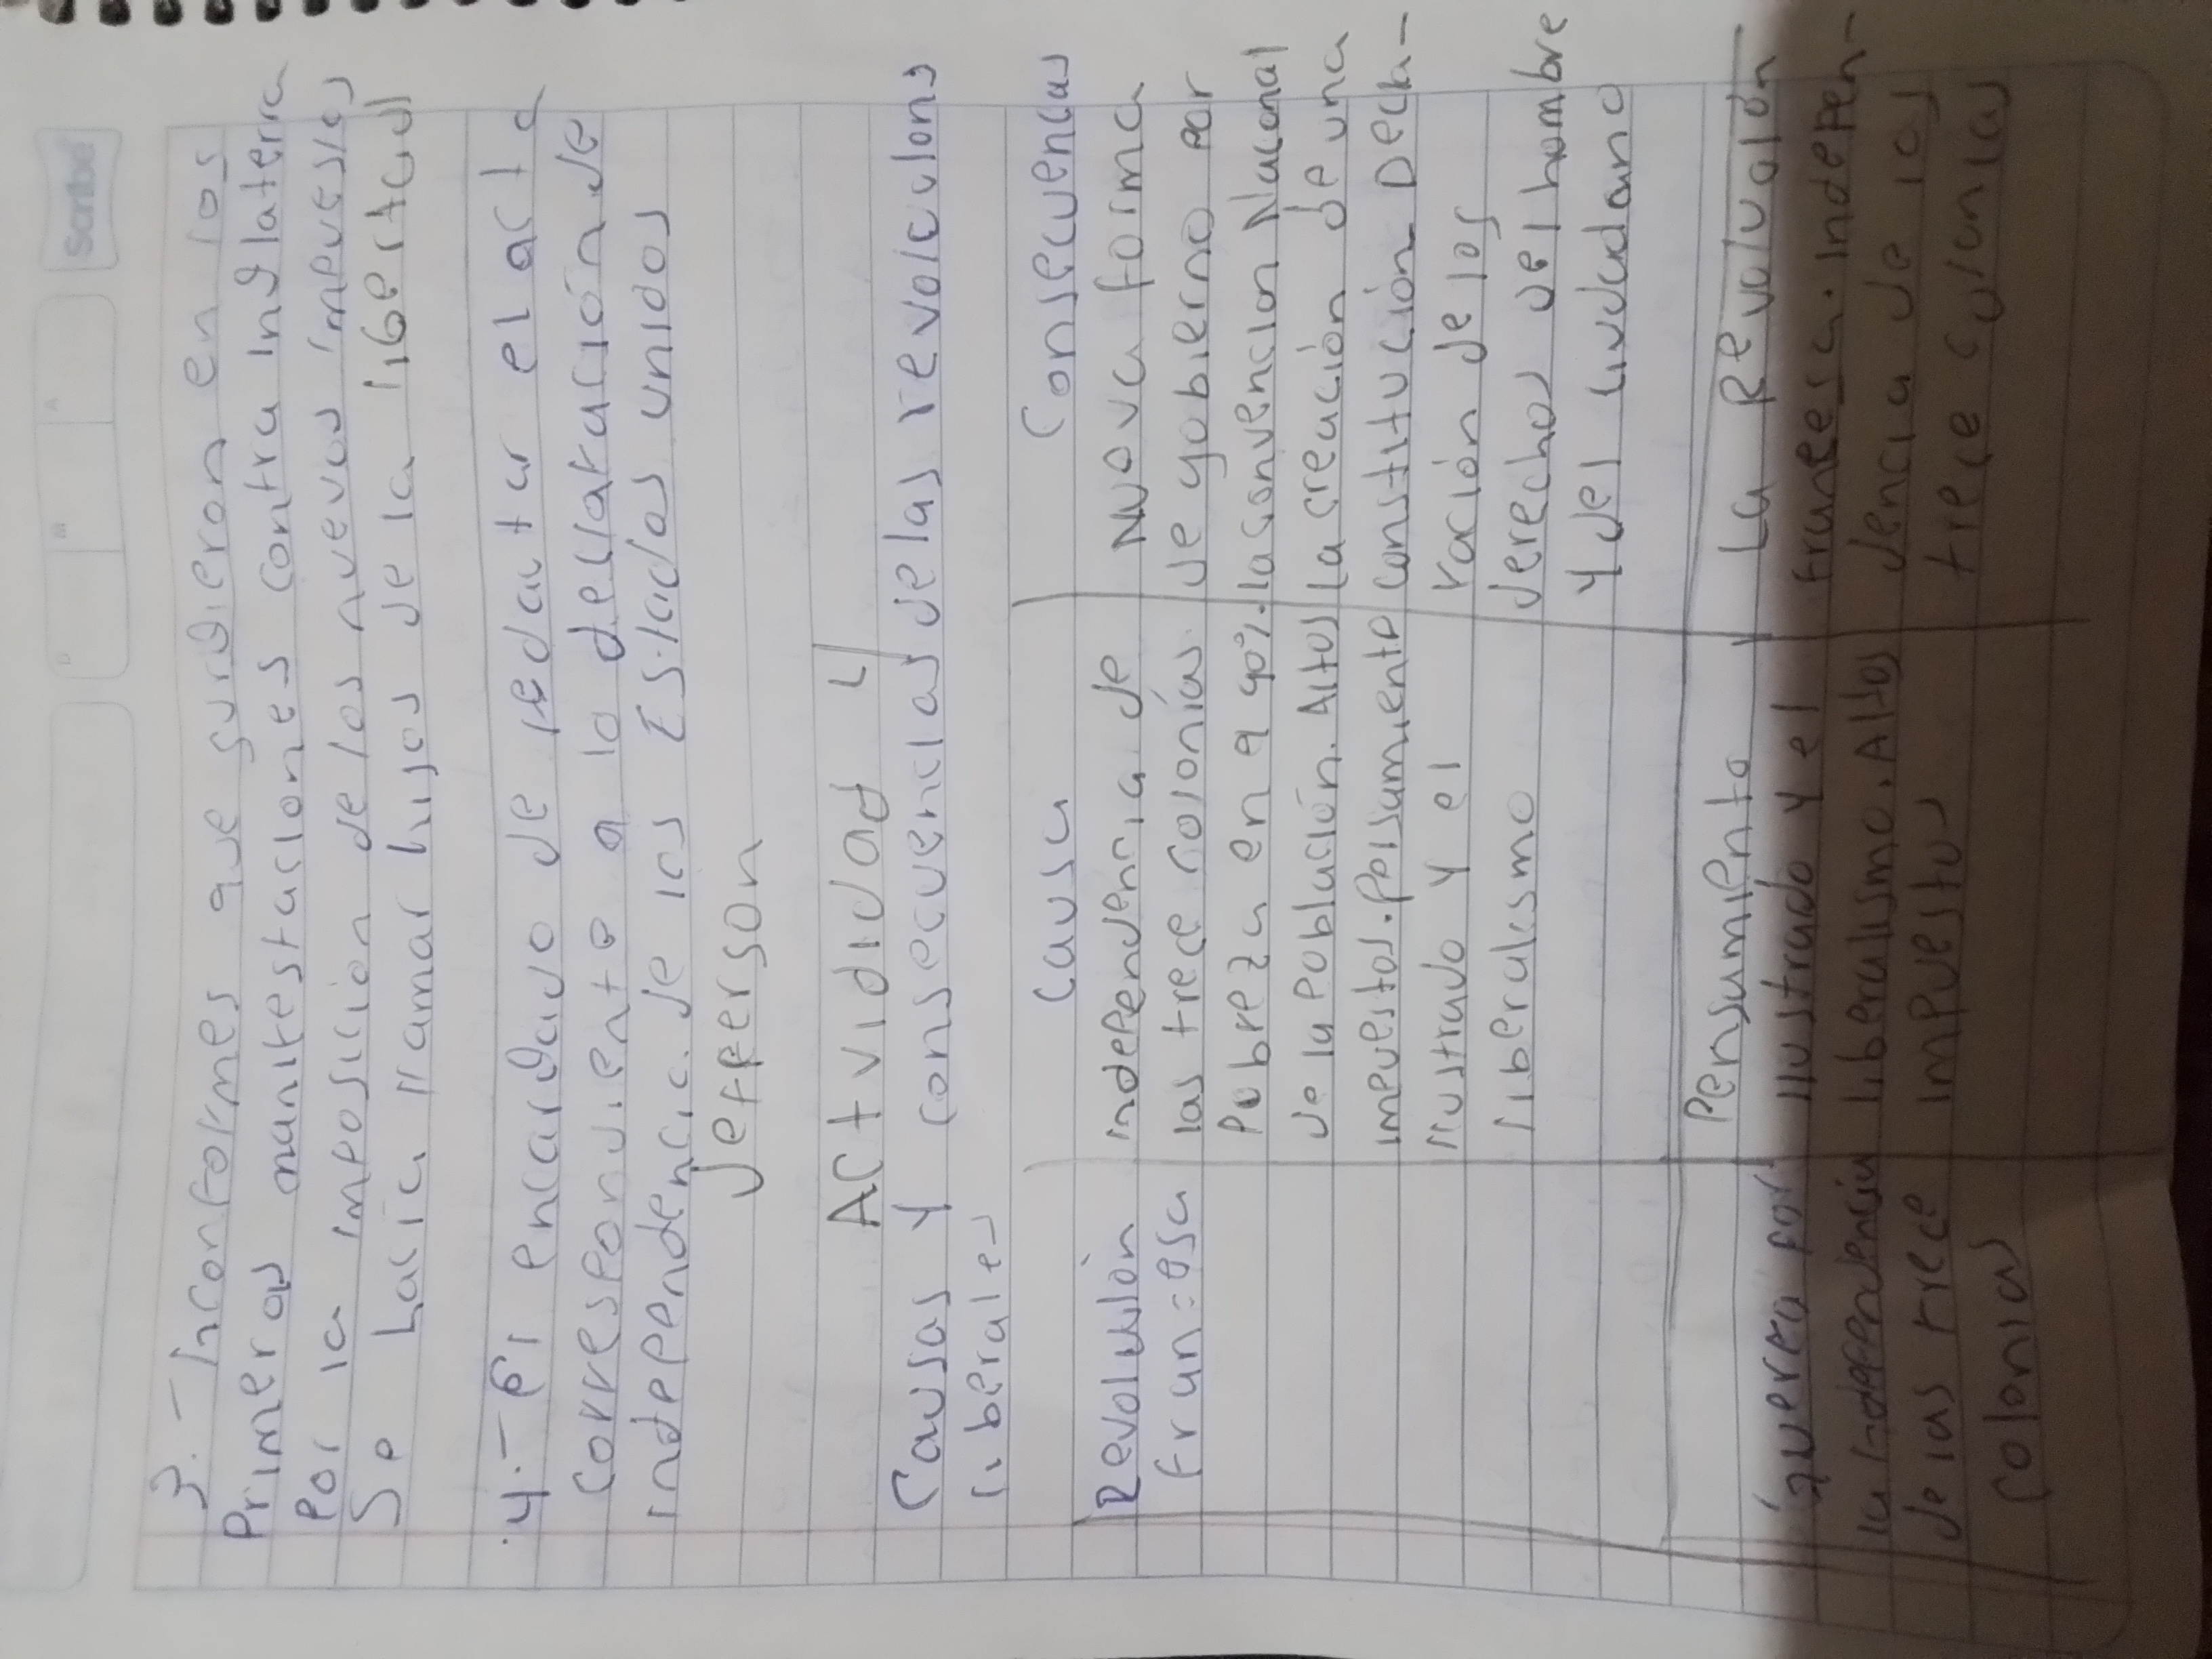 Scribe
D M A
3.- Inconformes que surgieron en los
Primeras manifestaciones contra inglaterra
Por la imposicion de los nuevos impuestos
Se hacia llamar hijos de la libertad
4.- El encargado de redactar el acta
correspondiente a la declaración de
independencia de los Estados unidos
Jefferson
Actvidad 4
Causas y consecuencias de las revoluciones
liberales
Causa Consecuencias
Revolución independencia de Nueva forma
francesa las trece colonias. de gobierno por
Pobreza en a 90%. la convencion Nacional
de la población. Altos la creación de una
impuestos. Pensamiento constitución. Decla-
ilustrado y el ración de los
liberalismo derechos del hombre
y del ciudadano
Pensamiento La Revolución
guerra por ilustrado y el francesa. Indepen-
la independencia liberalismo. Altos dencia de las
de las trece impuestos trece colonias
colonias